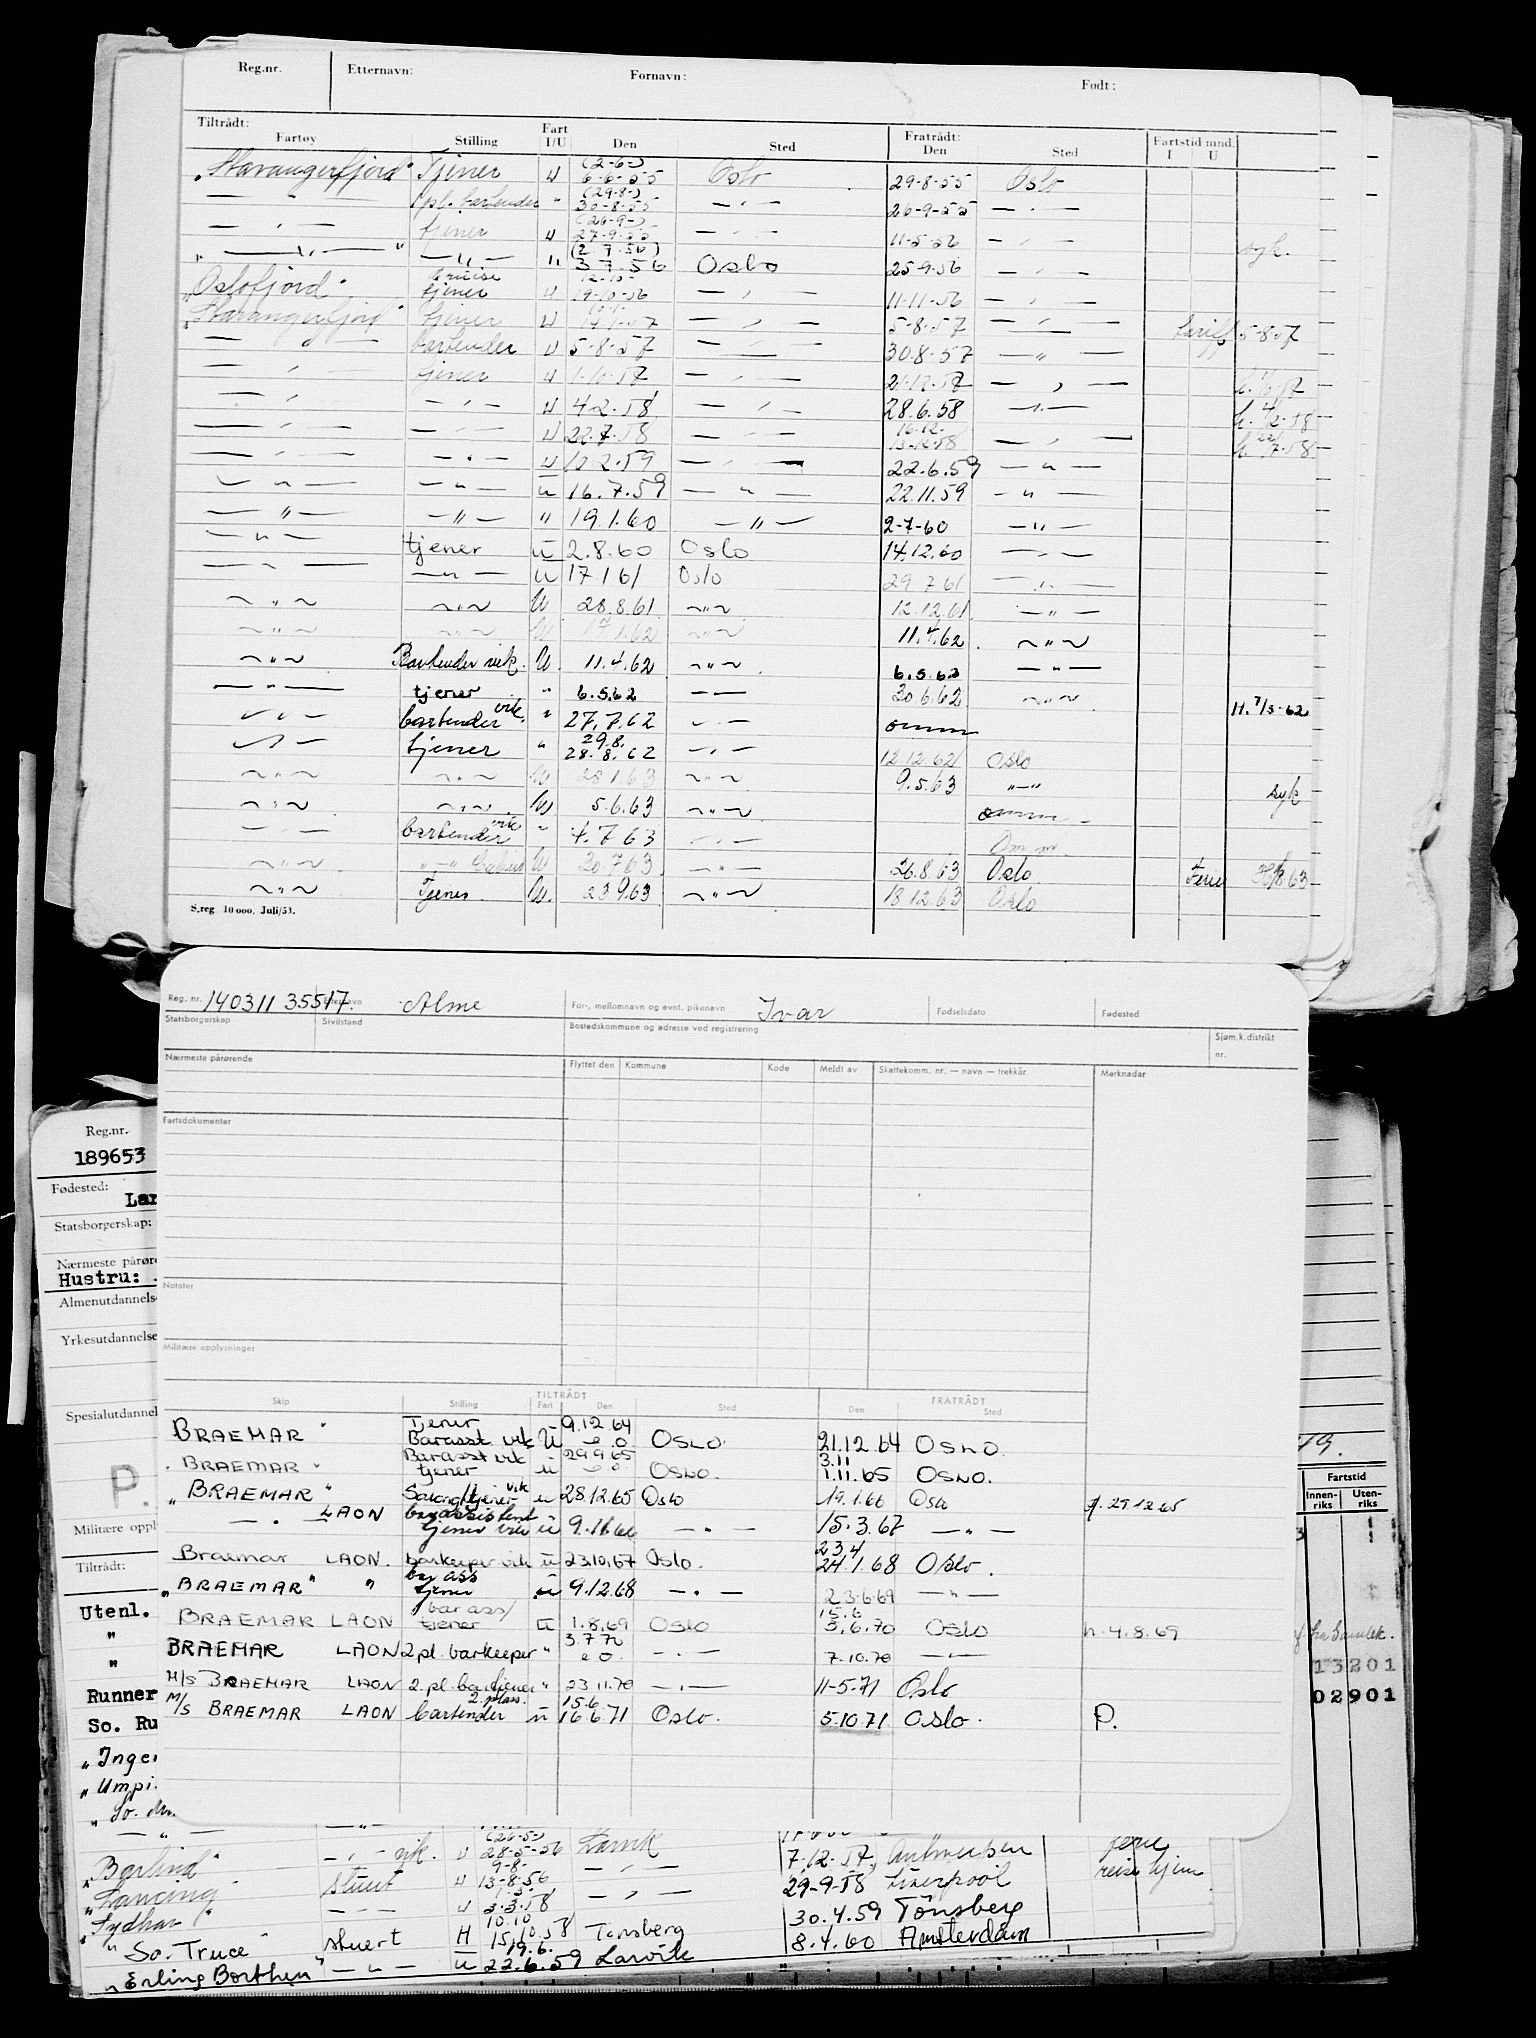 Reg.nr. Etternavn: Fornavn: Født:
Tiltrådt: Fratrådt: Fartstid mnd.
Fartøy Stilling Fart I/U Den Sted Den Sted I U
"Stavangerfjord" Tjener U (2-6-) 6-6-55 Oslo 29-8-55 Oslo
— " — spl. bartender " (29.8-) 30-8-55 — " — 26-9-55 — " —
— " — tjener U (26-9-) 27-9-55 — " — 11-5-56 — " — syk.
" — " — " — " — " (2.7.56) 3.7.56 Oslo 25.9.56 — " —
"Oslofjord" cruise tjener U 12-10- 19-10-56 — " — 11-11-56 — " —
"Stavangerfjord" tjener U 14-1-57 — " — 5-8-57 — " — tariff 5-8-57
— " — bartender U 5-8-57 — " — 30.8-57 — " —
— " — tjener U 1-10-57 — " — 21-12-57 — " — h. 1/10-57
— " — — " — U 4-2-58 — " — 28.6.58 — " — h. 4/2-58
— " — — " — U 22.7.58 — " — 16.12- 13-12-58 — " — h. 22/7-58
— " — — " — U 10.2.59 — " — 22.6.59 — " —
— " — — " — u 16.7.59 — " — 22.11.59 — " —
— " — — " — " 19.1.60 — " — 2-7-60 — " —
— " — tjener u 2.8.60 Oslo 14.12.60 — " —
— " — — " — u 17 1 61 Oslo 29 7 61 — " —
— " — — " — U 28.8.61 — " — 12.12.61 — " —
— " — — " — U 17 1.62 — " — 11.4.62 — " —
— " — Bartender vik. U. 11.4.62 — " — 6.5.62 — " —
— " — tjener " 6.5.62 — — 30.6.62 — " — H. 7/5-62
— " — bartender vik. " 27.7.62 — " — omm
— " — tjener " 29.8. 28.8.62 — " — 12.12.62 Oslo
— " — — " — U 28 1 63 — " — 9.5.63 — " — syk
— " — — " — U 5.6.63 — " — omm —
— " — bartender vik " 4.7 63 — " — Om m.
— " — — " — U 30.7.63 — " — 26.8.63 Oslo Ferie 26/8 63
— " — Tjener. U. 23 9.63 — " — 18 12.63 Oslo
S.reg. 10 000. Juli/53.
Reg. nr. 140311 35517. Etternavn Alme For-, mellomnavn og evnt. pikenavn Ivar Fødselsdato Fødested
Statsborgerskap Sivilstand Bostedskommune og adresse ved registrering Sjøm.k.distrikt nr.
Nærmeste pårørende Flyttet den Kommune Kode Meldt av Skattekomm. nr. — navn — trekkår Merknader
Fartsdokumenter
Notater
Militære opplysninger
TILTRÅDT FRATRÅDT
Skip Stilling Fart Den Sted Den Sted
BRAEMAR " Tjener Barasst vik U 9.12 64 OSLO. 21.12.64 OSLO.
BRAEMAR " Barasst vik tjener u 29.9 65 OSLO. 3.11 1.11.65 OSLO.
" BRAEMAR " Salongtjener vik u 28.12.65 Oslo 19.1.66 Oslo f. 29.12 65
— " — LAON barassistent tjener vik u 9.11.66 — " — 15.3.67 — " —
Braemar LAON. barkeeper vik u 23.10.67 Oslo. 23 4 24.1.68 Oslo.
" BRAEMAR " " bar ass tjener u 9.12.68 — " — 23.6.69 — " —
BRAEMAR LAON bar ass/ tjener u 1.8.69 Oslo 15.6 3.6.70 Oslo h. 4.8.69
BRAEMAR LAON 2 pl. barkeeper " 3.7 70 — " — 7.10.70 — " —
M/S BRAEMAR LAON 2. pl. bartjener " 23 11.70 — " — 11-5.71 Oslo
M/s BRAEMAR LAON 2. plass. bartender u 15.6 16.6 71 Oslo. 5.10.71 Oslo. P.
Reg.nr.
189653
Fødested:
Lar
Statsborgerskap:
Nærmeste pårøre
Hustru:
Almenutdannelse
Yrkesutdannelse
Spesialutdannel
P.
Militære oppl
Tiltrådt:
Utenl.
"
"
Runner
So. Ru
" Inger
" Umpi.
" So.
19.
Fartstid
Innen-riks Uten-riks
13201
02901
— " — — " —
(26-5-)
" Borlind " — " — vik. U 28-5-56 Larvik 7.12-57, Antwerpen ferie
" Lancing " stuert U 9-8- 13-8-56 — " — 29-9-58 Liverpool reise hjem
" Sydhav " — " — U 3.3.58 — " — 30.4.59 Tönsberg
" So. Truce " stuert H 10.10 15.10.58 Tønsberg 8.4.60 Amsterdam
" Erling Borthen " — " — u 19.6. 22.6.59 Larvik